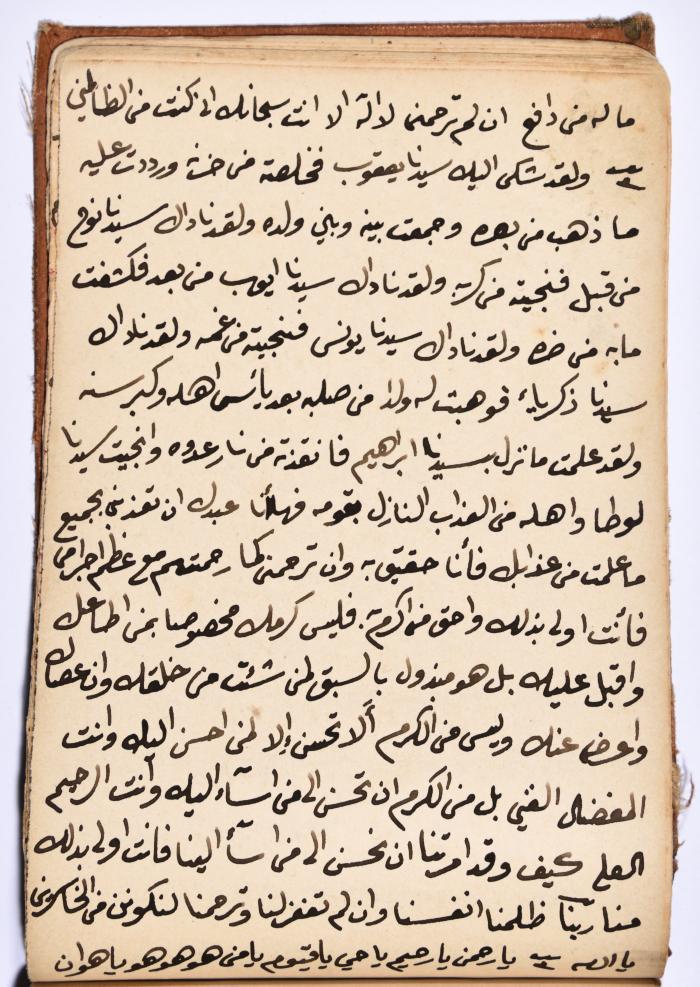 ما له من دافع ان لم ترحمنى لا اله الا انت سبحانك انى كنت من الظالمين
ولقد شكى اليك سيدنا يعقوب فخلصته من حزنه ورددت عليه
ما ذهب من بصره وجمعت بينه وبين ولده ولقد ناداك سيدنا نوح
من قبل فنجيته من كربه ولقد ناداك سيدنا ايوب من بعد فكشفت
مابه من ضره ولقد ناداك سيدنا يونس فنجيته من غمه ولقد ناداك
سيدنا زكرياء فوهبت له ولدا من صلبه بعد يأس اهله وكبر سنه
ولقد علمت ما نزل بسيدنا ابراهيم فانقذته من نار عدوه وانجيت سيدنا
لوطا واهله من العذاب النازل بقومه فهاأنا عبدك ان تعذبنى بجميع
ما علمت من عذابك فأنا حقيق به وان ترحمنى كما رحمتهم مع عظم اجرامى
فأنت اولى بذلك واحق من اكرم به. فليس كرمك مخصوصا بمن اطاعك
واقبل عليك بل هو مبذول بالسبق لمن شئت من خلقك وان عصاك
واعرض عنك وليس من الكرم ألا تحسن إلا لمن احسن اليك وانت
المفضال الغني بل من الكرم ان تحسن الى من اسآء اليك وأنت الرحيم
العلي كيف وقد امرتنا ان نحسن الى من اسآء الينا فانت اولى بذلك
منا ربنا ظلمنا انفسنا وان لم تغفر لنا وترحمنا لنكونن من الخاسرين
يا الله يا رحمن يا رحيم يا حي يا قيوم يا من هو هو هو يا هو ان